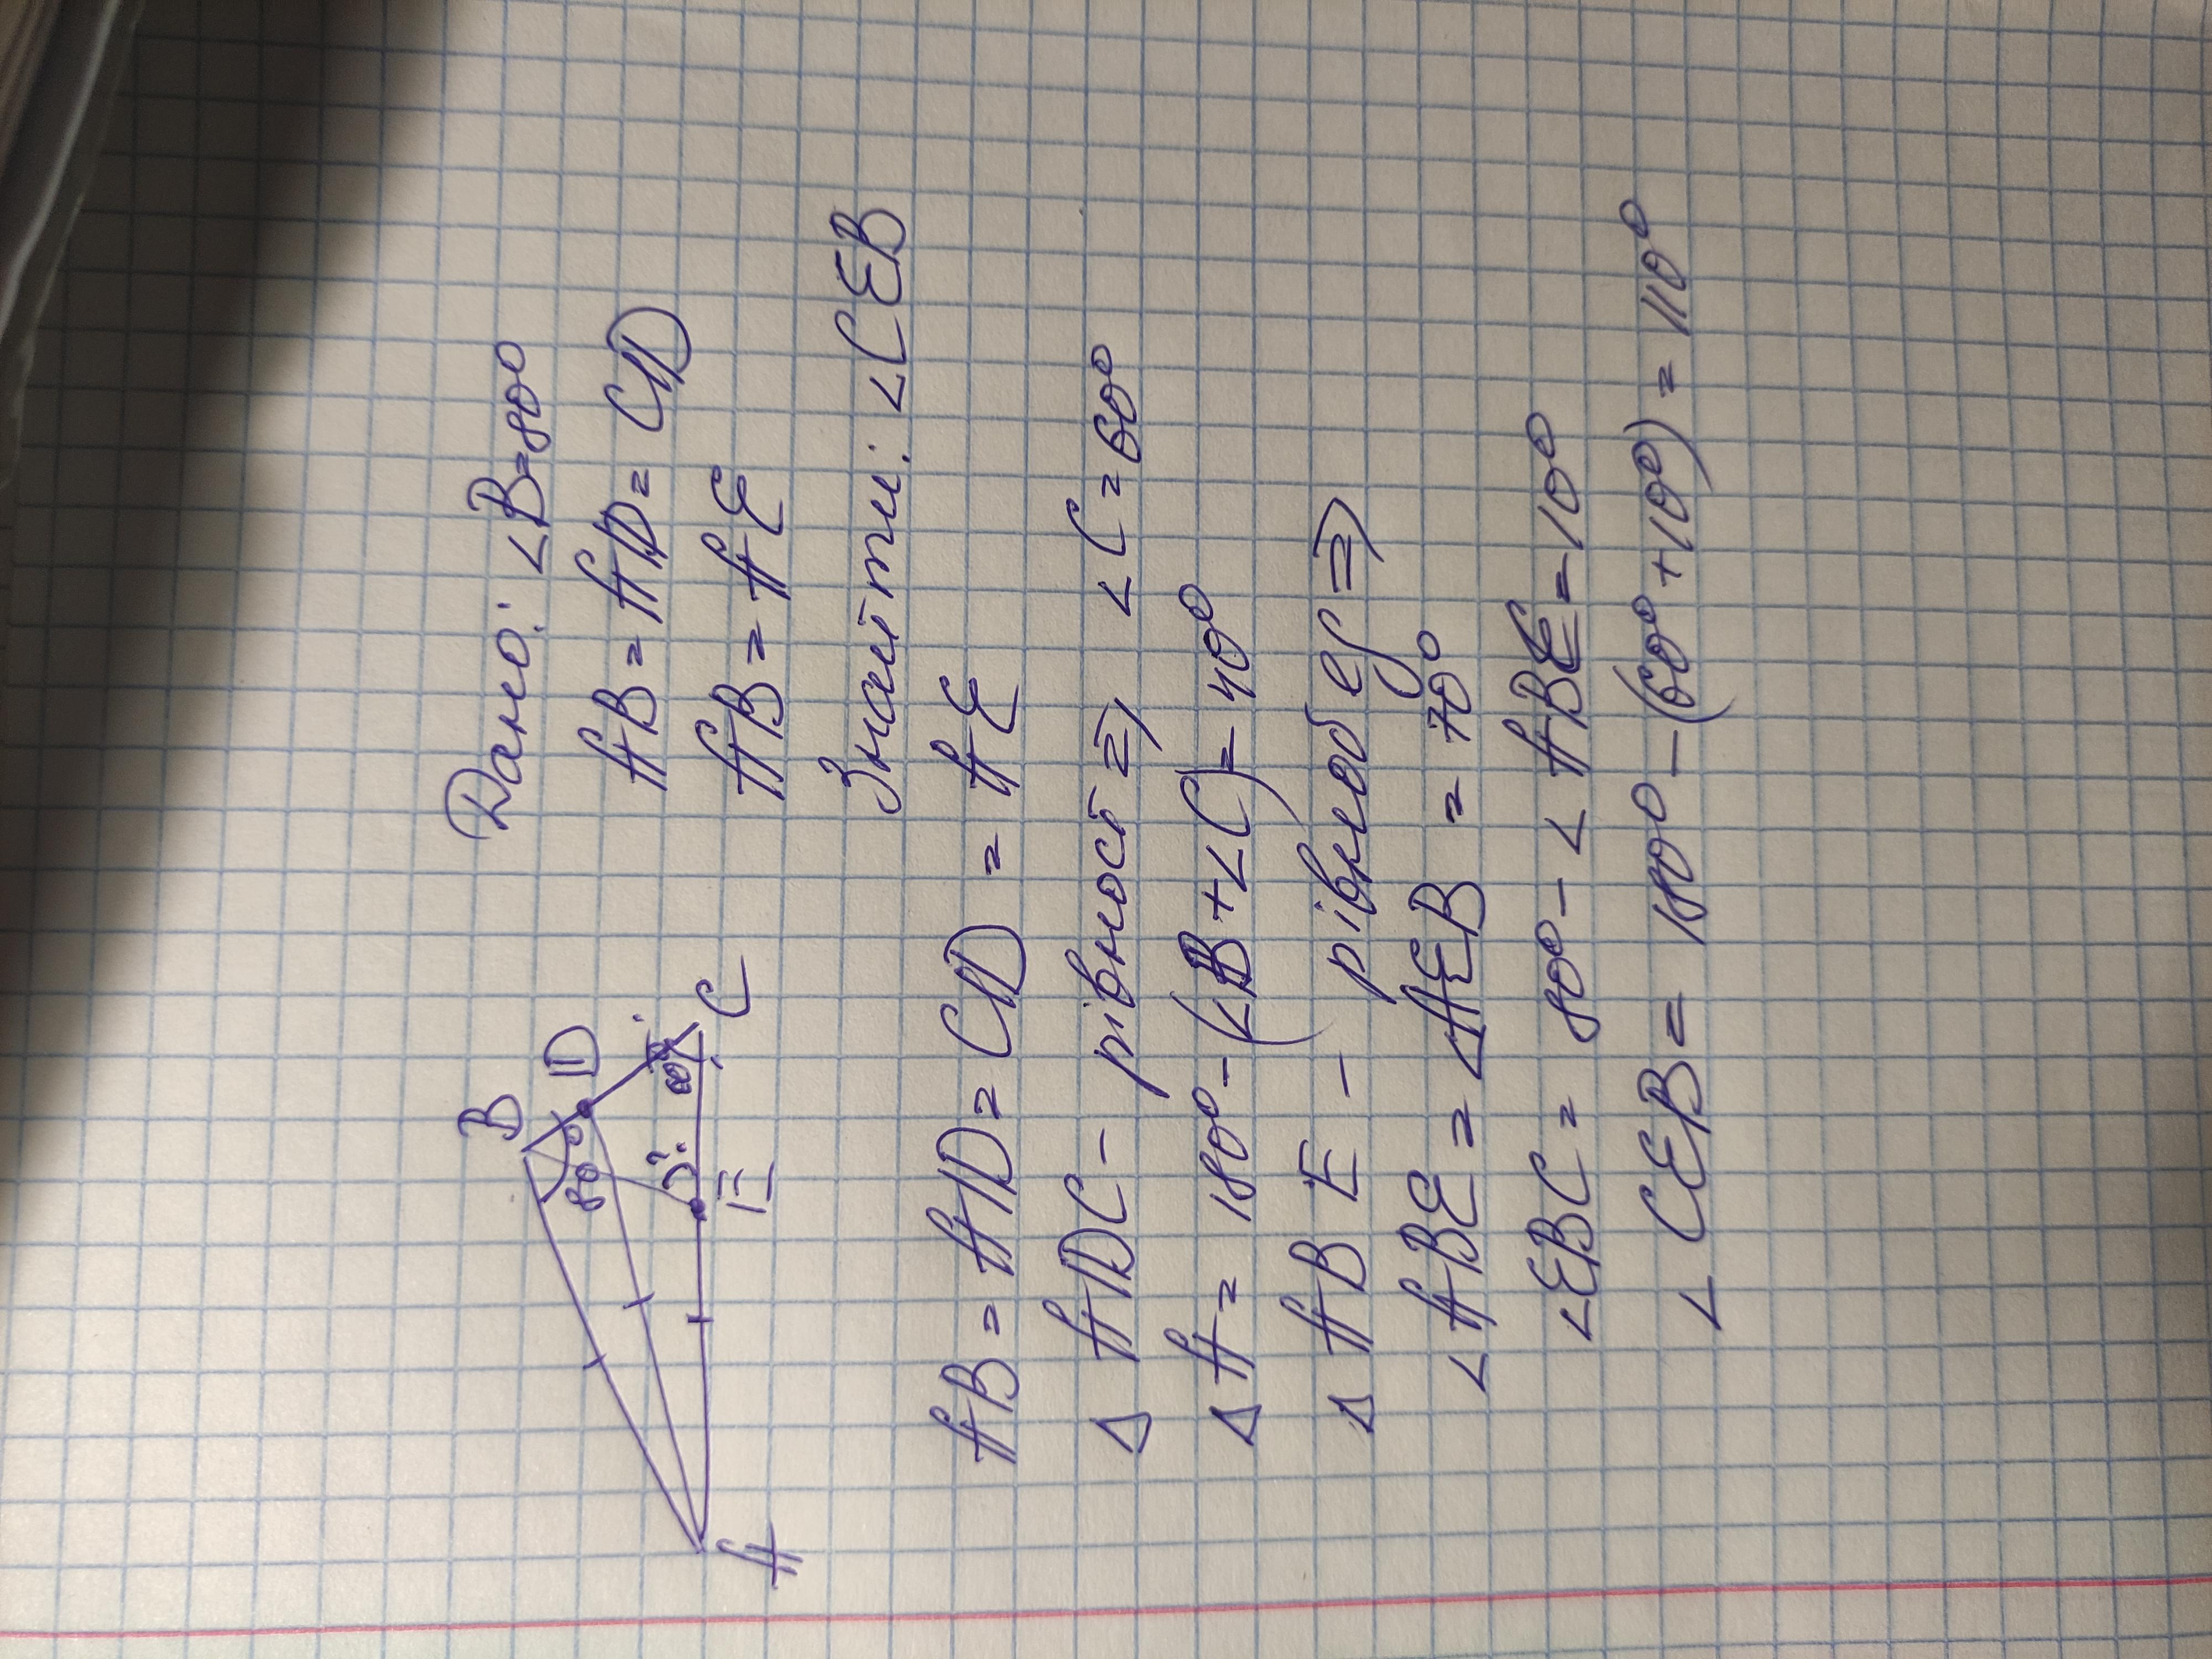 Дано: <B=80°
AB = AD = CD
AB = AE
Знайти: <CEB
B
D
80°
?
60°
A
E
C
AB = AD = CD = AE
Δ ADC - рівност => <C = 60°
Δ A = 180° - (<B + <C) = 40°
Δ ABE - рівнобед =>
< ABE = <AEB = 70°
<EBC = 80° - < ABE = 10°
< CEB = 180° - (60° + 10°) = 110°